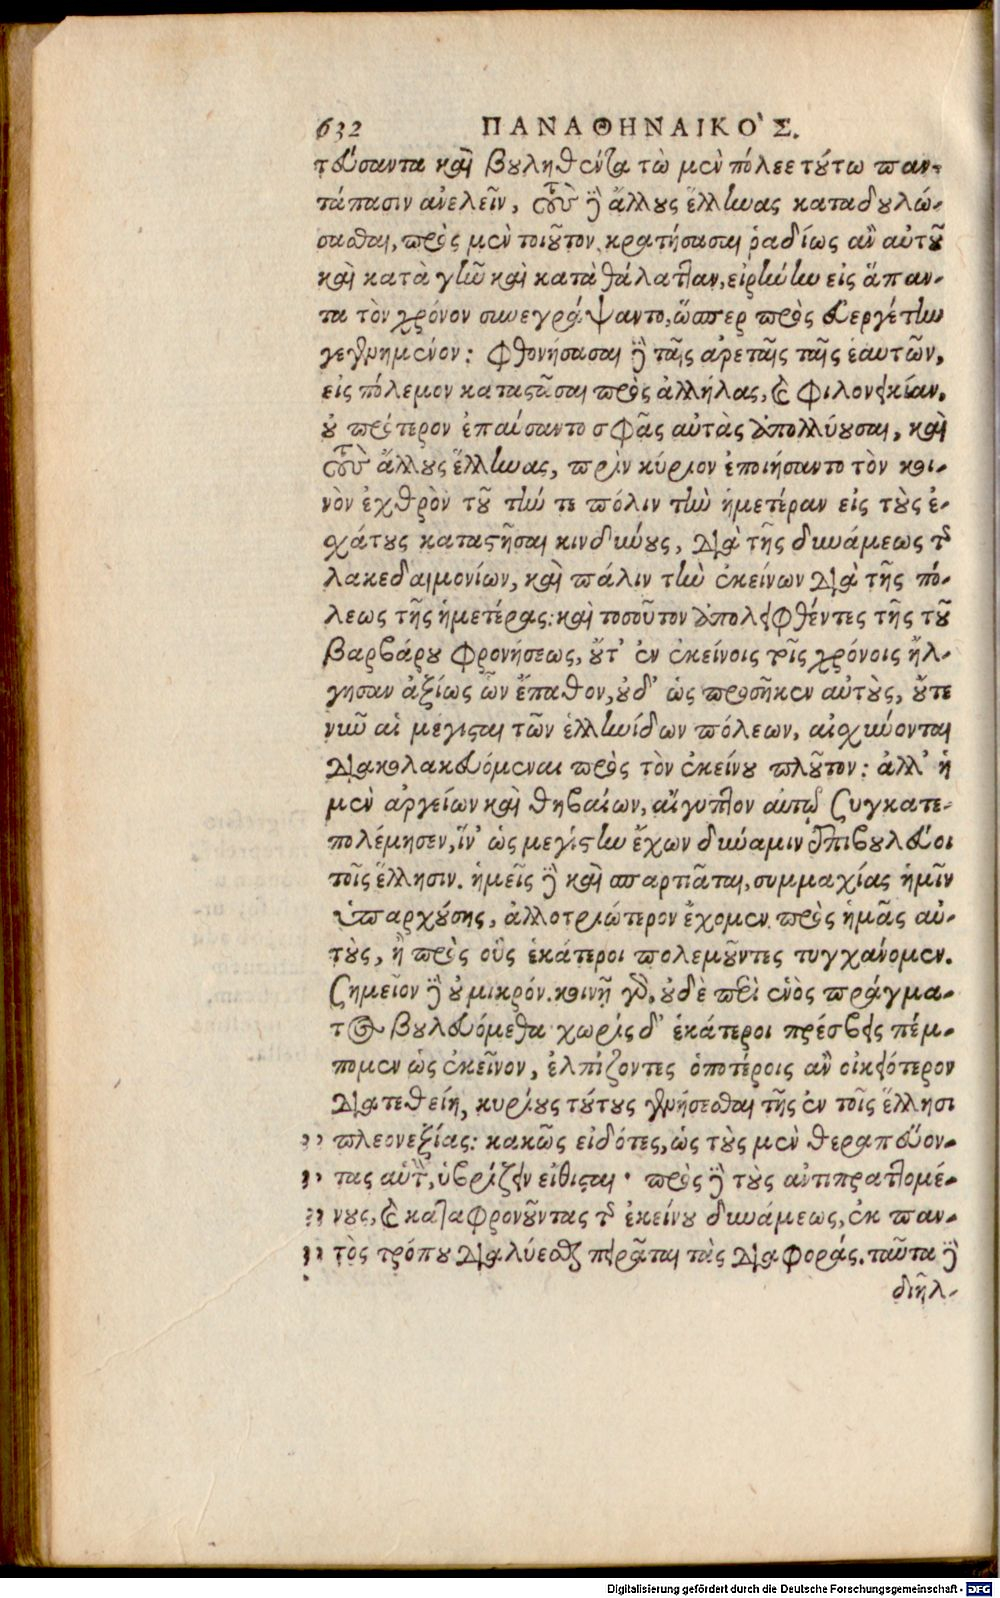 632 ΠΑΝΑΘΗΝΑΙΚΟ`Σ.
τεύσαντα καὶ βουληθέντα τὼ μὲν πόλεε τούτω παν-
τάπασιν ἀνελεῖν, τοὺς δὲ ἄλλους ἕλληνας καταδουλώ-
σασθαι, πρὸς μὲν τοιοῦτον κρατήσασαι ῥαδίως ἂν αὐτοῦ
καὶ κατὰ γῆν καὶ κατὰ θάλατταν, εἰρήνην εἰς ἅπαν-
τα τὸν χρόνον συνεγράψαντο, ὥσπερ πρὸς εὐεργέτην
γεγενημένον: φθονήσασαι δὲ ταῖς ἀρεταῖς ταῖς ἑαυτῶν,
εἰς πόλεμον καταστᾶσαι πρὸς ἀλλήλας, καὶ φιλονεικίαν,
οὐ πρότερον ἐπαύσαντο σφᾶς αὐτὰς ἀπολλύουσαι, καὶ
τοὺς ἄλλους ἕλληνας, πρὶν κύριον ἐποιήσαντο τὸν κοι-
νὸν ἐχθρὸν τοῦ τήν τε πόλιν τὴν ἡμετέραν εἰς τοὺς ἐ-
χάτους καταστῆσαι κινδύνους, διὰ τῆς δυνάμεως τῆς
λακεδαιμονίων, καὶ πάλιν τὴν ἐκείνων διὰ τῆς πό-
λεως τῆς ἡμετέρας: καὶ τοσοῦτον ἀπολειφθέντες τῆς τοῦ
βαρβάρου φρονήσεως, οὔτ' ἐν ἐκείνοις τοῖς χρόνοις ἤλ-
γησαν ἀξίως ὧν ἔπαθον, οὐδ' ὡς προσῆκεν αὐτοὺς, οὔτε
νῦν αἱ μεγισται τῶν ἑλληνίδων πόλεων, αἰσχύνονται
διακολακευόμεναι πρὸς τὸν ἐκείνου πλοῦτον: ἀλλ' ἡ
μὲν ἀργείων καὶ θηβαίων, αἴγυπτον αὐτῷ συγκατε-
πολέμησεν, ἵν' ὡς μεγίστην ἔχων δύναμιν ἐπιβουλεύοι
τοῖς ἕλλησιν. ἡμεῖς δὲ καὶ σπαρτιᾶται, συμμαχίας ἡμῖν
ὑπαρχούσης, ἀλλοτριώτερον ἔχομεν πρὸς ἡμᾶς αὐ-
τοὺς, ἢ πρὸς οὓς ἑκάτεροι πολεμοῦντες τυγχάνομεν.
σημεῖον δὲ οὐ μικρόν. κοινῇ γὰρ οὐδὲ περὶ ἑνὸς πράγμα-
τος βουλευόμεθα χωρὶς δ' ἑκάτεροι πρέσβεις πέμ-
πομεν ὡς ἐκεῖνον, ἐλπίζοντες ὁποτέροις ἂν οἰκειότερον
διατεθείη, κυρίους τούτους γενήσεσθαι τῆς ἐν τοῖς ἕλλησι
,, πλεονεξίας: κακῶς εἰδότες, ὡς τοὺς μὲν θεραπεύον-
,, τας αὐτὸν, ὑβρίζειν εἴθισται· πρὸς δὲ τοὺς ἀντιπραττομέ-
,, νους, καὶ καταφρονοῦντας τῆς ἐκείνου δυνάμεως, ἐκ παν-
,, τὸς τρόπου διαλύεσθαι πειρᾶται τὰς διαφοράς. ταῦτα δὲ
διῆλ-
Digitalisierung gefördert durch die Deutsche Forschungsgemeinschaft - DFG